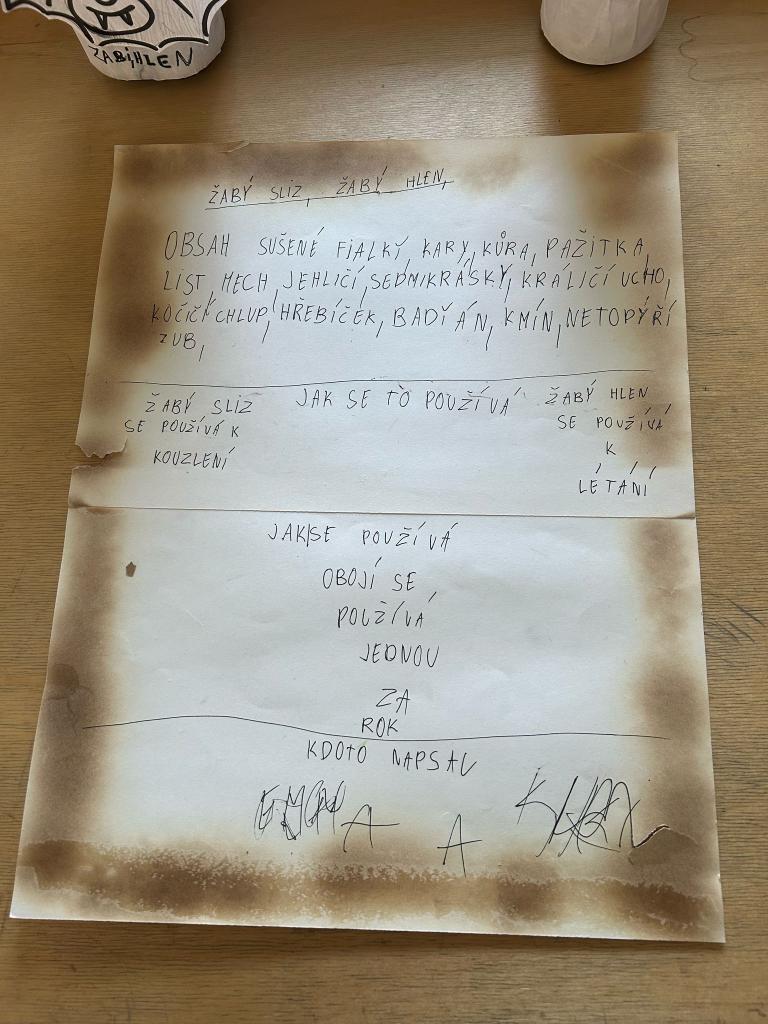 ŽABÍHLEN
ŽABÝ SLIZ, ŽABÝ HLEN,
OBSAH SUŠENÉ FIALKY, KARY, KŮRA, PAŽITKA,
LIST, MECH, JEHLIČÍ, SEDMIKRÁSKY, KRÁLIČÍ UCHO,
KOČIČÍ CHLUP, HŘEBÍČEK, BADÍÁN, KMÍN, NETOPÝŘÍ
ZUB,
JAK SE TO POUŽÍVÁ
ŽABÝ SLIZ
SE POUŽÍVÁ K
KOUZLENÍ
ŽABÝ HLEN
SE POUŽÍVÁ
K
LÉTÁNÍ
JAK SE POUŽÍVÁ
OBOJÍ SE
POUŽÍVÁ
JEDNOU
ZA
ROK
KDOTO NAPSAL
A A